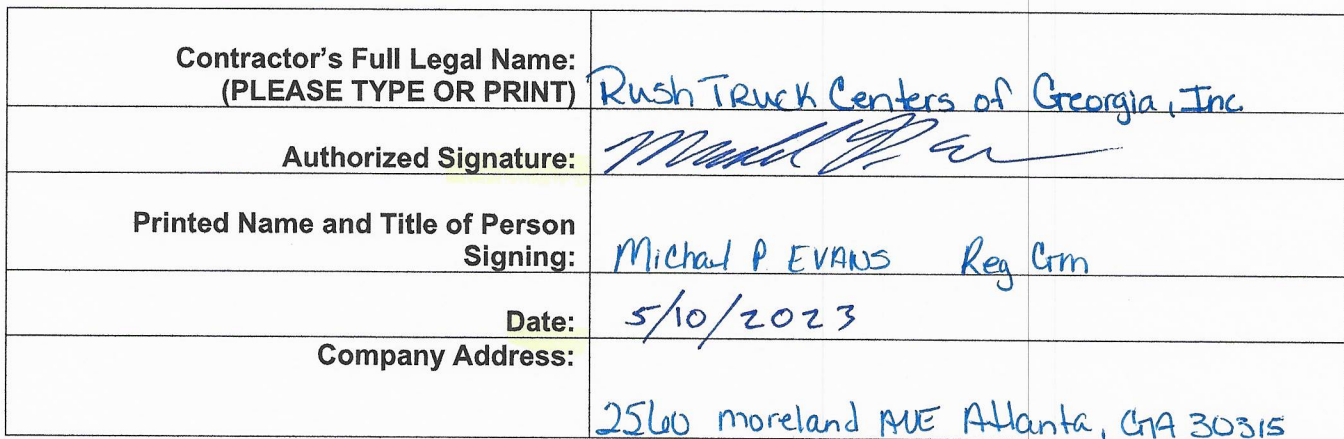 Contractor's Full Legal Name:
(PLEASE TYPE OR PRINT) Rush Truck Centers of Georgia, Inc.
Authorized Signature:
Printed Name and Title of Person
Signing: Michael P EVANS Reg Gm
Date: 5/10/2023
Company Address:
2560 moreland AVE Atlanta, GA 30315